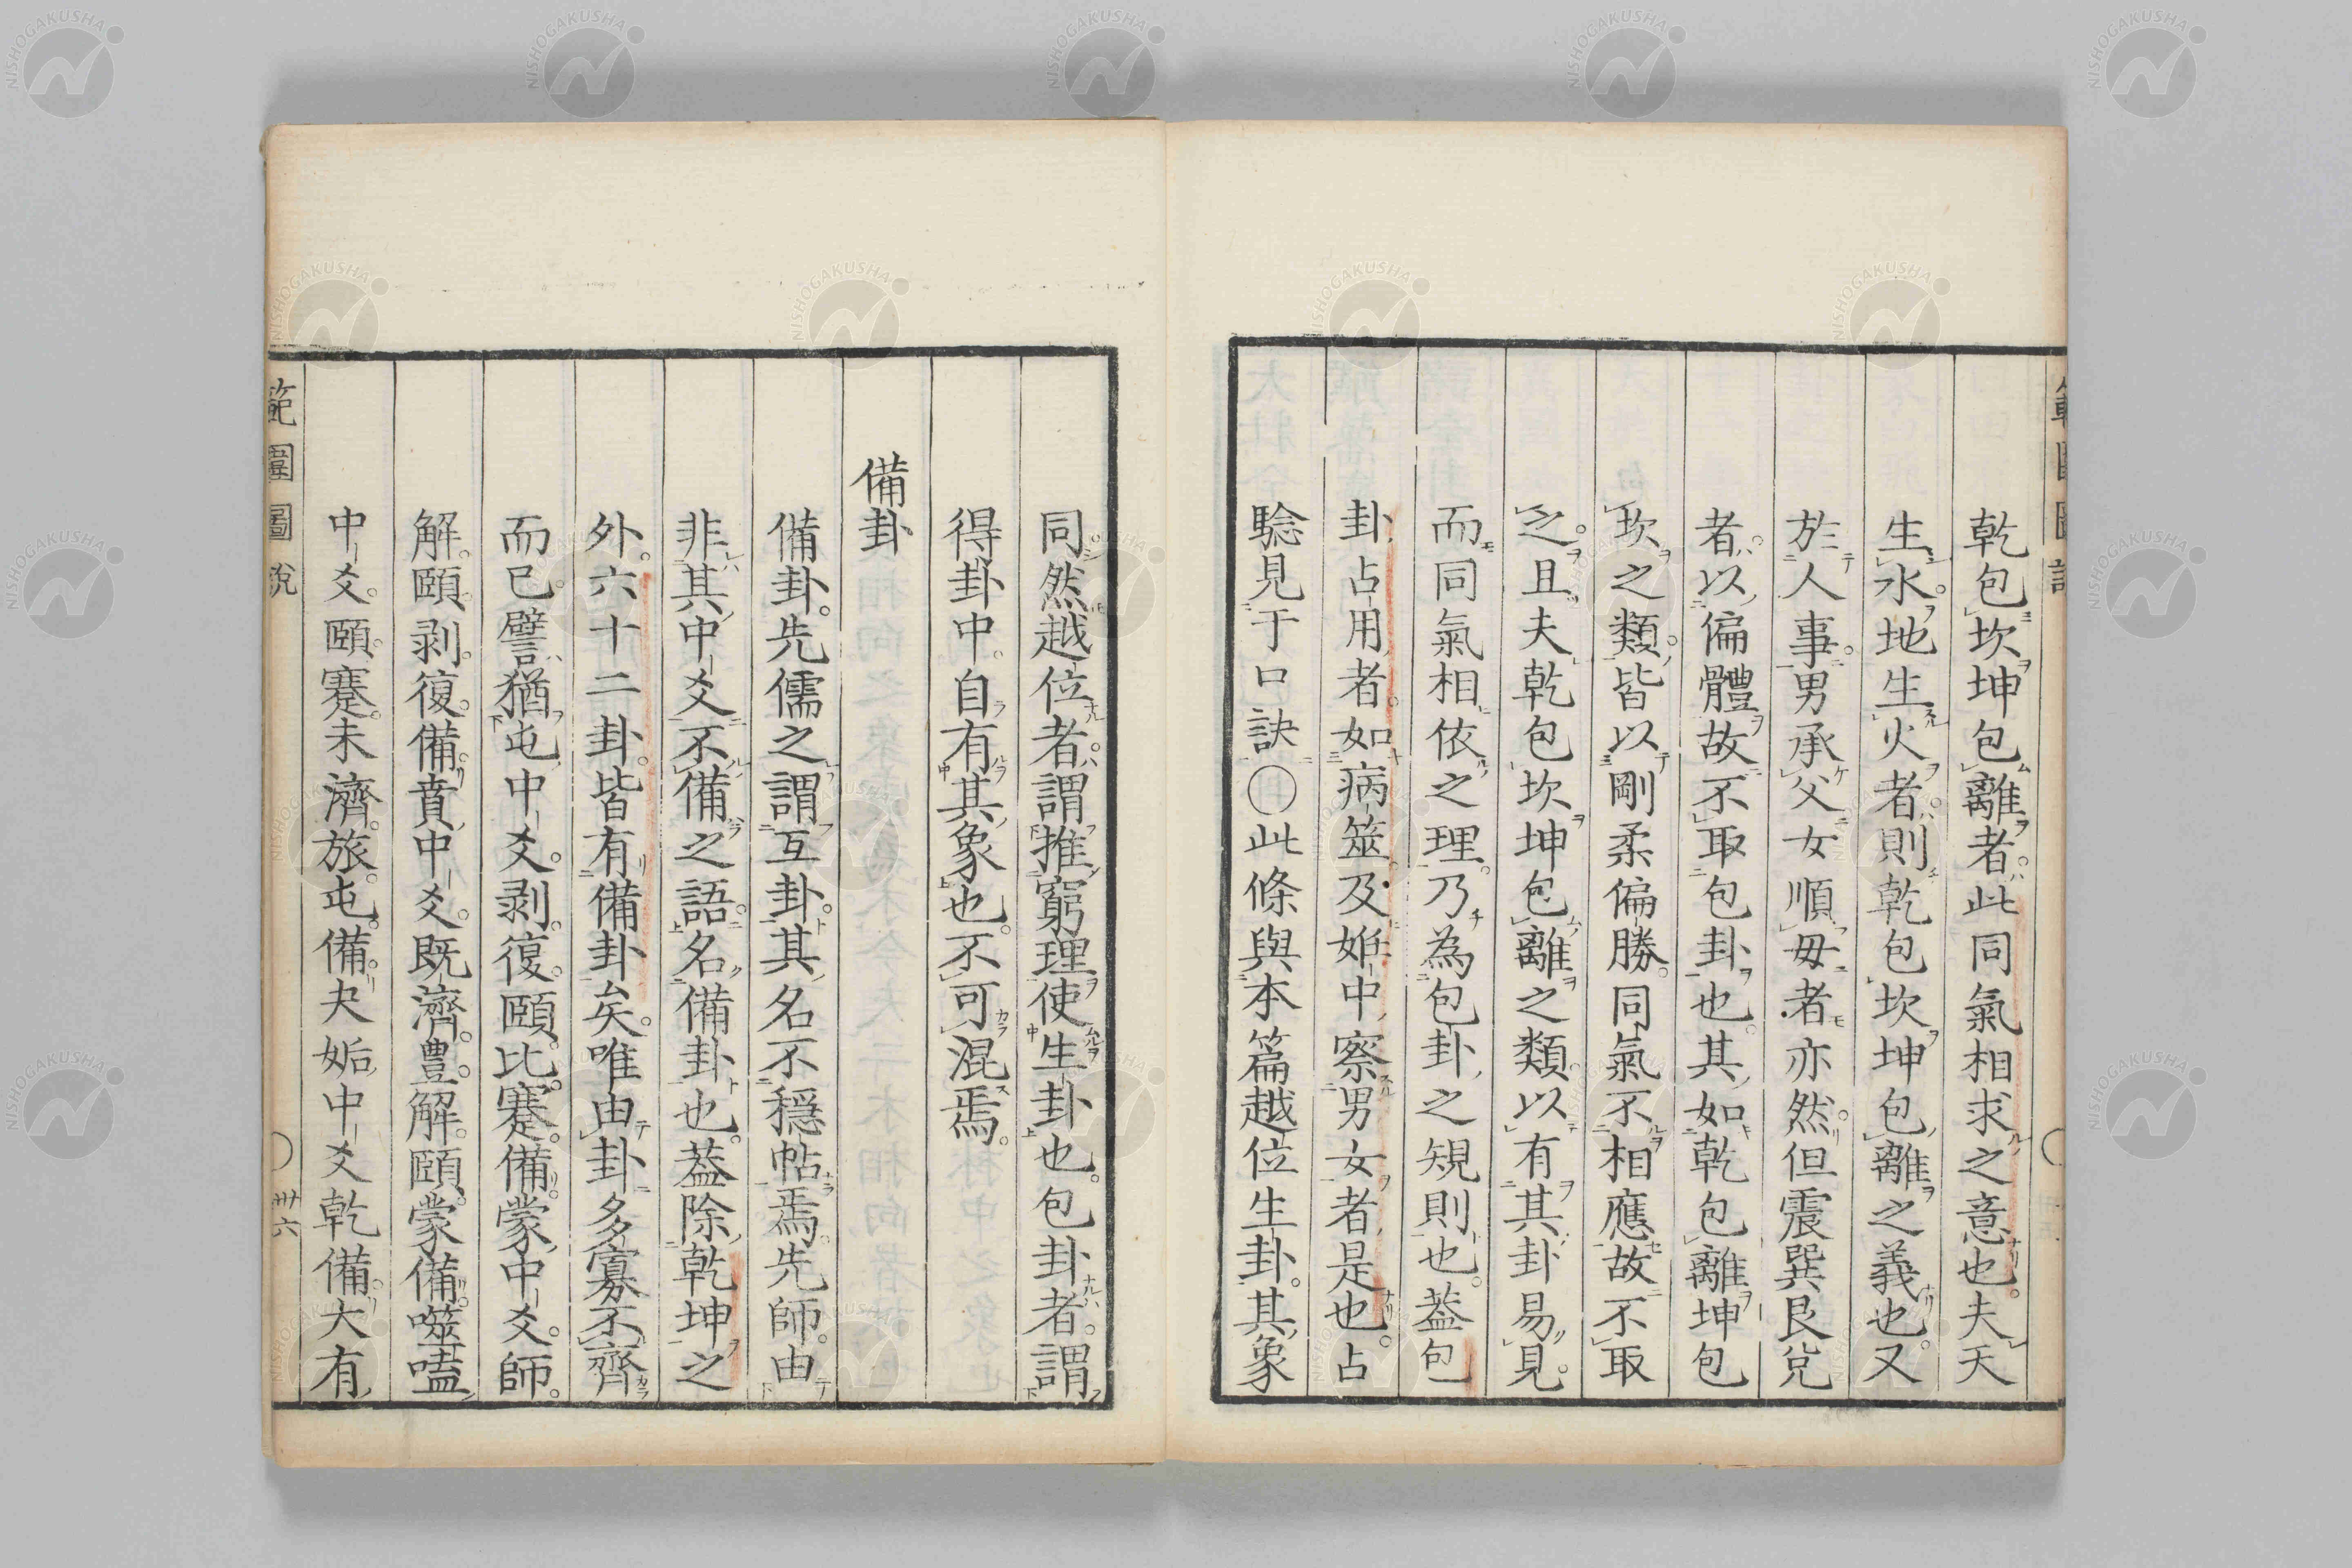 乾包坎坤包離者此同氣相求之意也夫天
生水地生火者則乾包坎坤包離之義也又
於人事男承父女順母者亦然但震巽艮兌
者以偏體故不取包卦也其如乾包離坤包
坎之類皆以剛柔偏勝同氣不相應故不取
之且夫乾包坎坤包離之類以有其卦易見
而同氣相依之理乃為包卦之規則也葢包
卦占用者如病筮及姙中察男女者是也占
驗見于口訣○此條與本篇越位生卦其象
同然越位者謂推窮理使生卦也包卦者謂
得卦中自有其象也不可混焉
備卦
備卦先儒之謂互卦其名不穩帖焉先師由
非其中爻不備之語名備卦也葢除乾坤之
外六十二卦皆有備卦矣唯由卦多寡不齊
而已譬猶屯中爻剥復頤比蹇備蒙中爻師
解頤剥復備賁中爻既濟豊解頤蒙備噬嗑
中爻頤蹇未濟旅屯備夬姤中爻乾備大有
範圍圖說
卅六
NISHOGAKUSHA